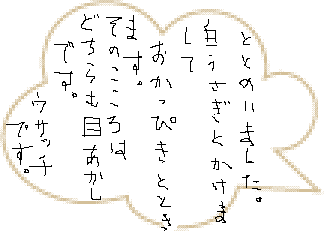 ととのいました。
白うさぎとかけま
して
おかっぴきととき
ます。
そのこころは
どちらも目あかし
です。
ウサッチ
です。